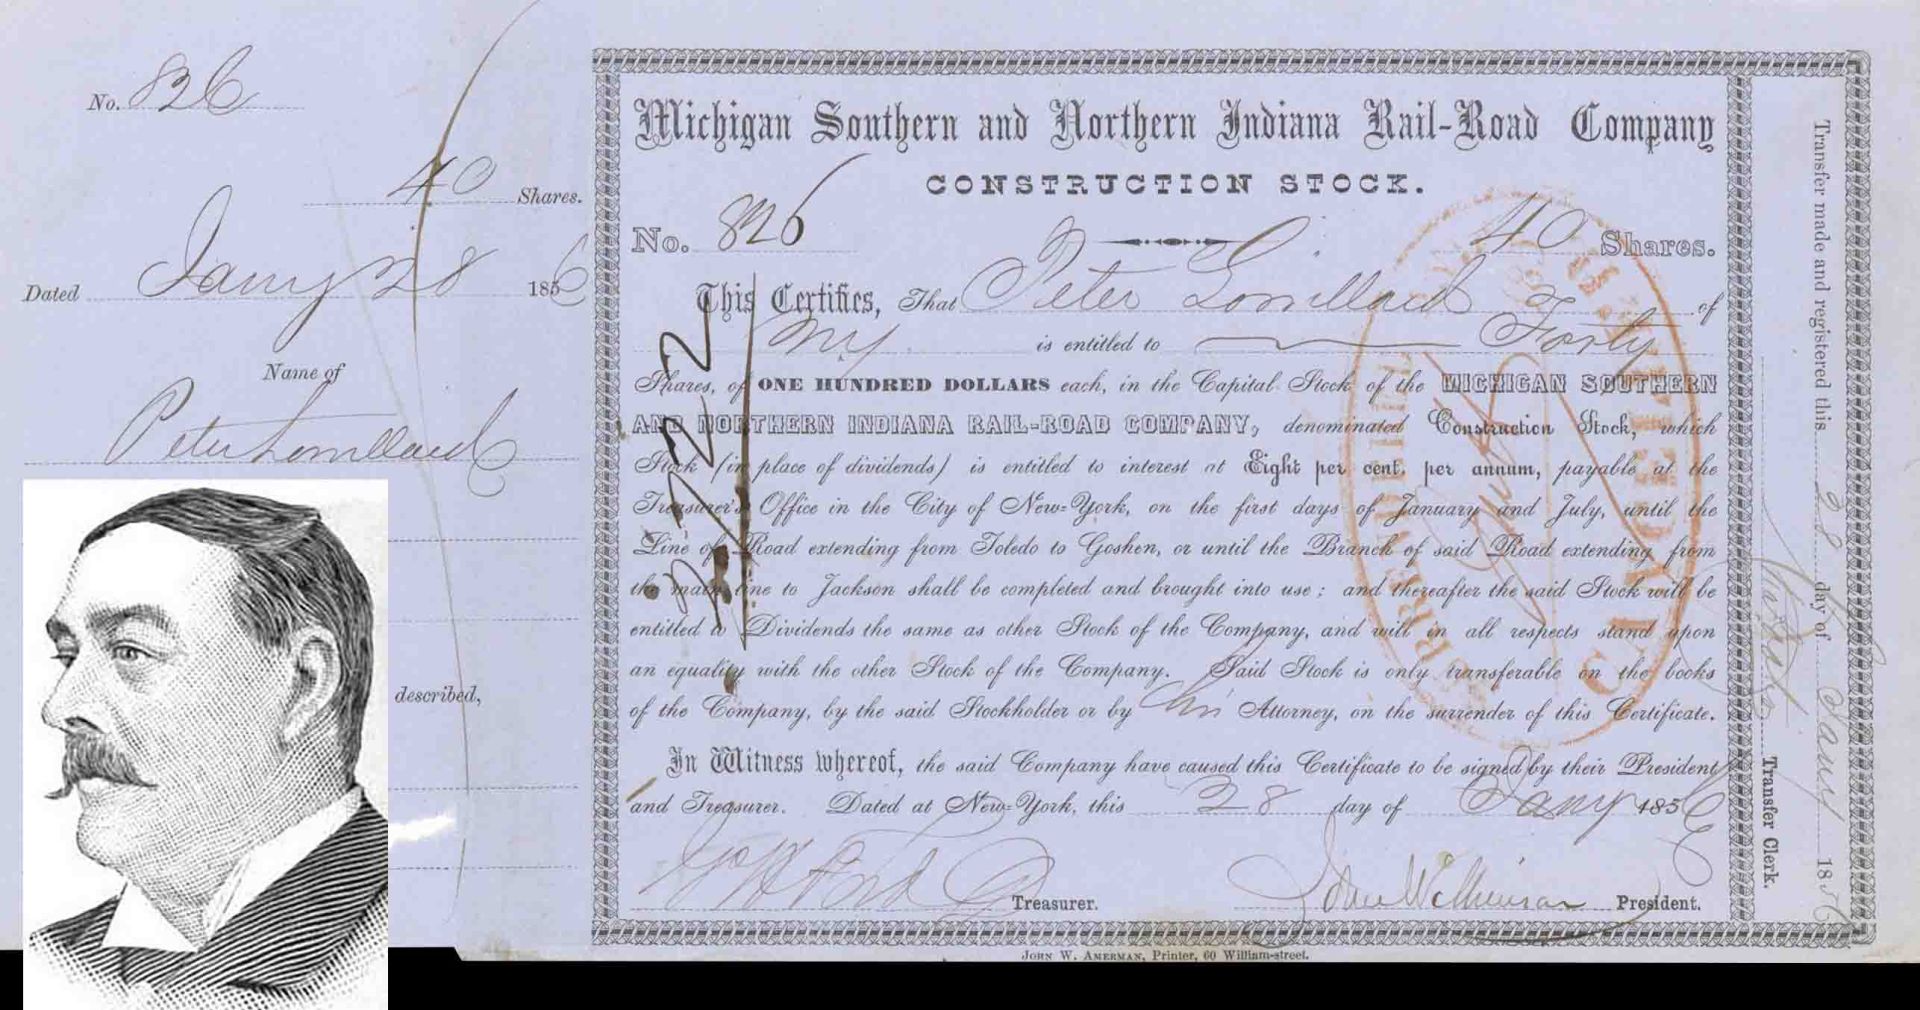 No. 826
40 Shares.
Dated Jany 28 1856
Name of
Peter Lorillard
described,
Michigan Southern and Northern Indiana Rail-Road Company
CONSTRUCTION STOCK.
No. 826 40 Shares.
This Certifies, That Peter Lorillard of
NY is entitled to Forty
Shares, of ONE HUNDRED DOLLARS each, in the Capital Stock of the MICHIGAN SOUTHERN
AND NORTHERN INDIANA RAIL-ROAD COMPANY, denominated Construction Stock, which
Stock (in place of dividends) is entitled to interest at Eight per cent. per annum, payable at the
Treasurer's Office in the City of New-York, on the first days of January and July, until the
Line of Road extending from Toledo to Goshen, or until the Branch of said Road extending from
the main line to Jackson shall be completed and brought into use; and thereafter the said Stock will be
entitled to Dividends the same as other Stock of the Company, and will in all respects stand upon
an equality with the other Stock of the Company. Said Stock is only transferable on the books
of the Company, by the said Stockholder or by his Attorney, on the surrender of this Certificate.
In Witness whereof, the said Company have caused this Certificate to be signed by their President
and Treasurer. Dated at New-York, this 28 day of Jany 1856
Treasurer. John Wilkinson President.
JOHN W. AMERMAN, Printer, 60 William-street.
Transfer made and registered this 28 day of Jany 1856
Transfer Clerk.